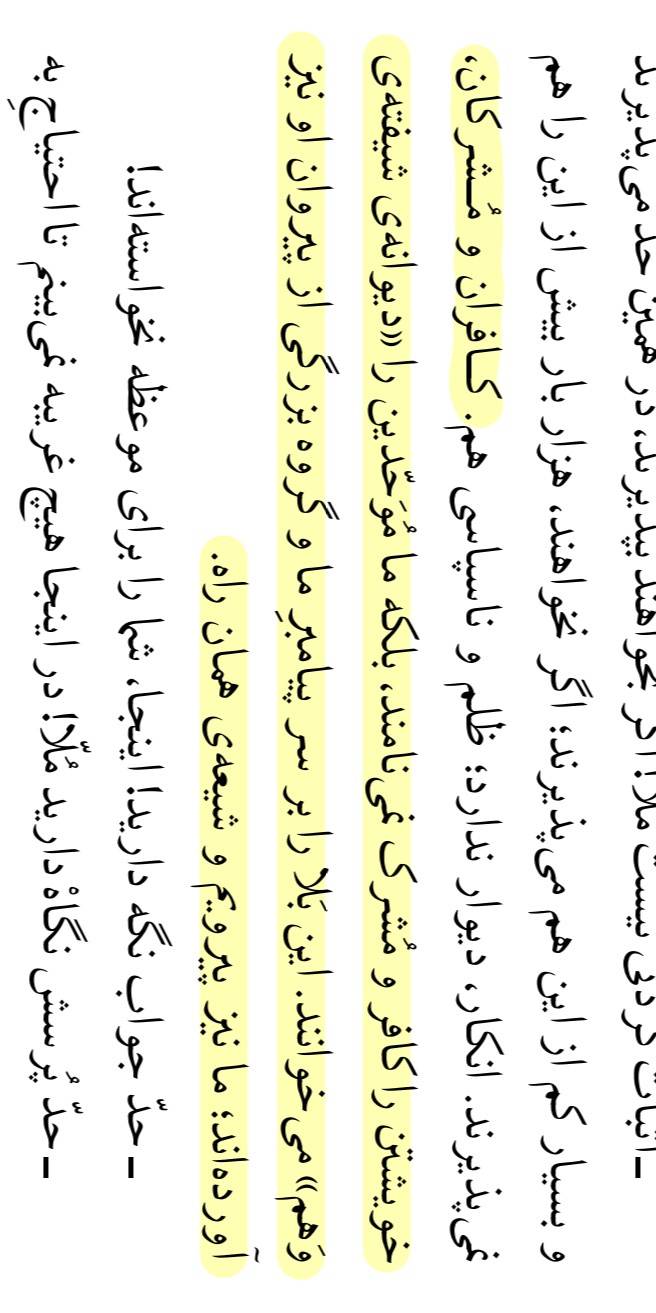 –اثبات کردنی نیست ملّا! اگر بخواهند بپذیرند، در همین حد می‌پذیرند
و بسیار کم از این هم می‌پذیرند؛ اگر نخواهند، هزار بار بیش از این را هم
نمی‌پذیرند. انکار، دیوار ندارد؛ ظلم و ناسپاسی هم. کافران و مُشرکان،
خویشتن را کافر و مُشرک نمی‌نامند، بلکه ما مُوَحّدین را «دیوانه‌ی شیفته‌ی
وَهم» می‌خوانند. این بَلا را بر سر پیامبرِ ما و گروه بزرگی از پیروان او نیز
آورده‌اند؛ ما نیز پیرویم و شیعه‌ی همان راه.
–حدّ جواب نگه دارید! اینجا، شما را برای موعظه نخواسته‌اند!
–حدّ پُرسش نگاهْ دارید مُلّا! در اینجا هیچ غریبه نمی‌بینم تا احتیاجِ به